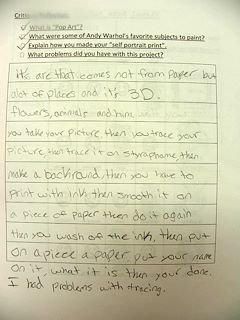 What is "Pop Art"?
What were some of Andy Warhol's favorite subjects to paint?
Explain how you made your "self portrait print".
What problems did you have with this project?
it's are that comes not from paper but
alot of places and it's 3D.
flowers, anmials and him.
you take your picture, then you trace your
picture, then trace it on styraphome, then
make a backround, then you have to
print with ink then smooth it on
a piece of paper then do it again
then you wash of the ink, then put
on a piece a paper, put your name
on it, what it is then your done.
I had problems with tracing.